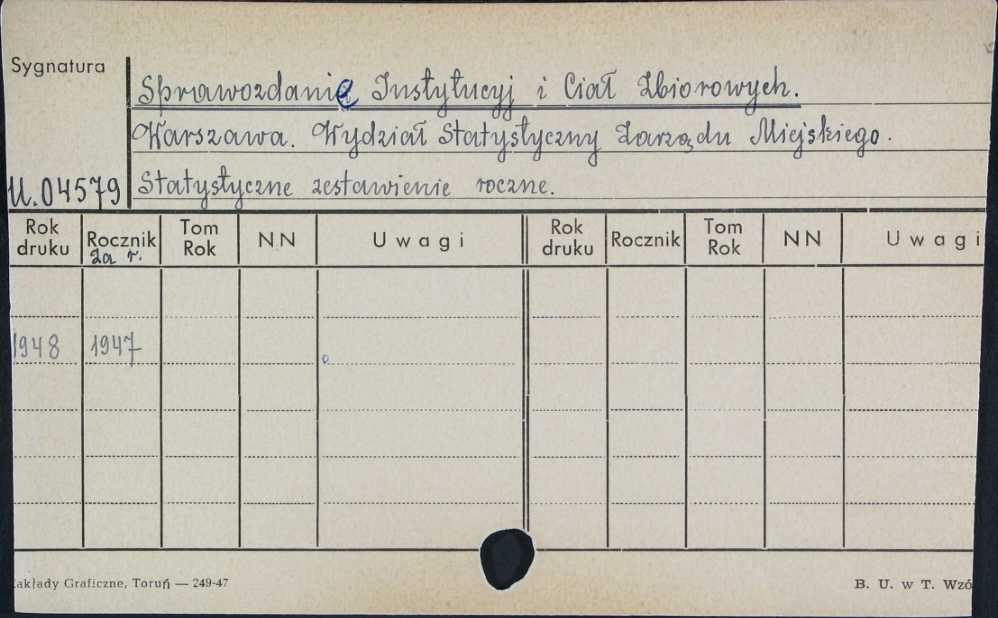 Sygnatura
Sprawozdanie Instytucyj i Ciał Zbiorowych.
Warszawa. Wydział Statystyczny Zarządu Miejskiego.
U.04579
Statystyczne zestawienie roczne.
Rok druku Rocznik za r. Tom Rok NN Uwagi Rok druku Rocznik Tom Rok NN Uwagi
1948 1947
akłady Graficzne, Toruń — 249-47
B. U. w T. Wzó